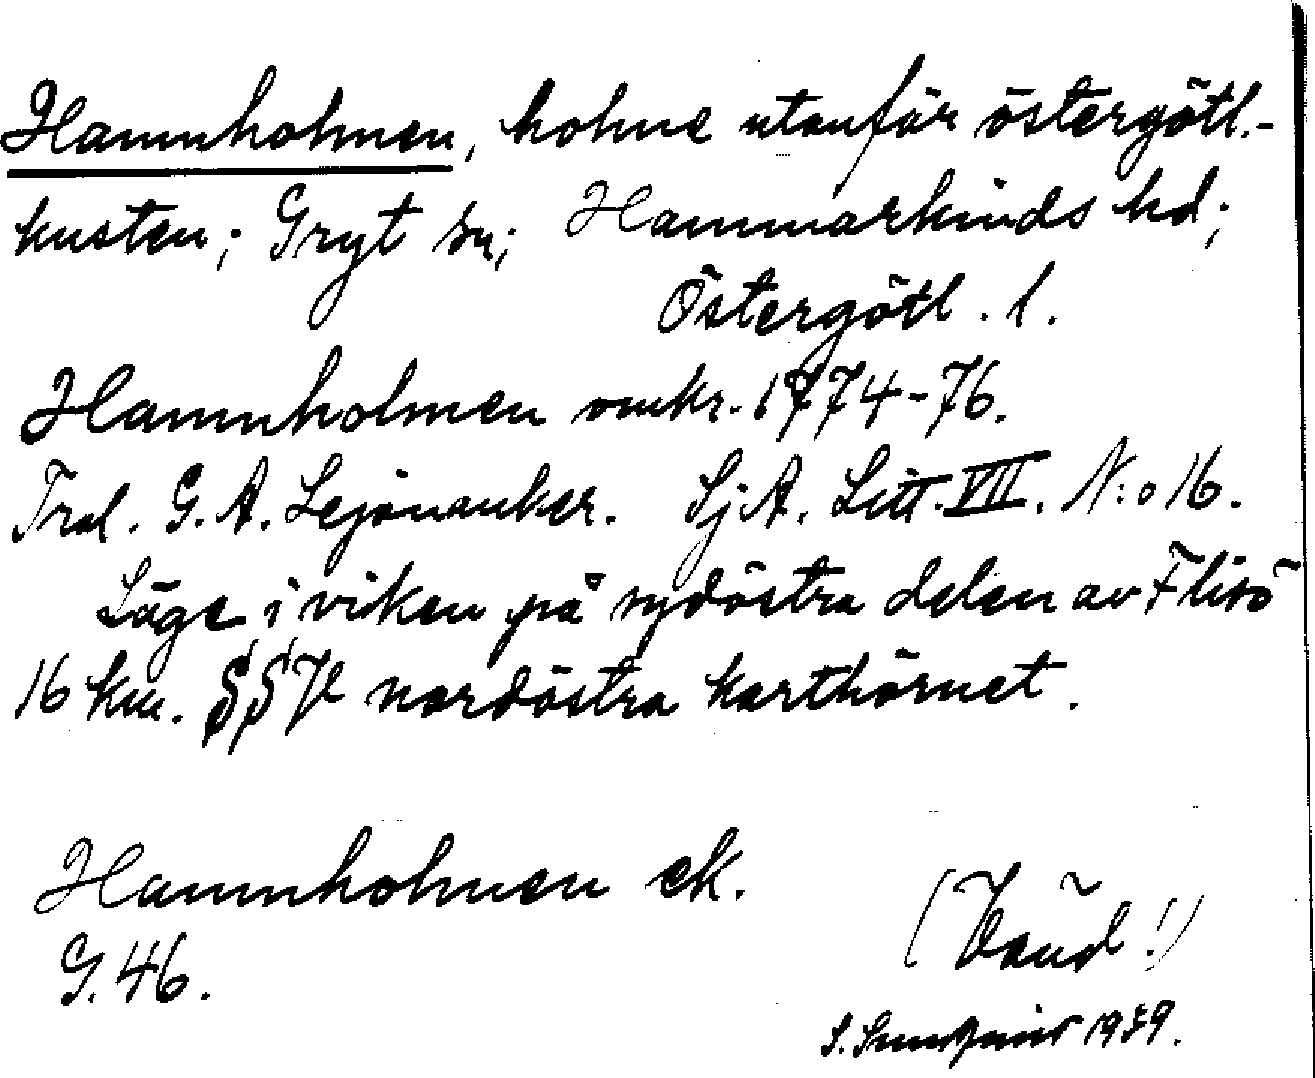 Hamnholmen, holme utanför östergötl.-
kusten; Gryt sn; Hammarkinds hd;
Östergötl. l.
Hamnholmen omkr. 1774-76.
Trol. G. A. Lejonanker. SjA. Litt. VII. N:o 16.
Läge i viken på sydöstra delen av Flisö
16 km. nordöstra karthörnet.
Hamnholmen ek.
G. 46.
(Vänd!)
S. 1939.